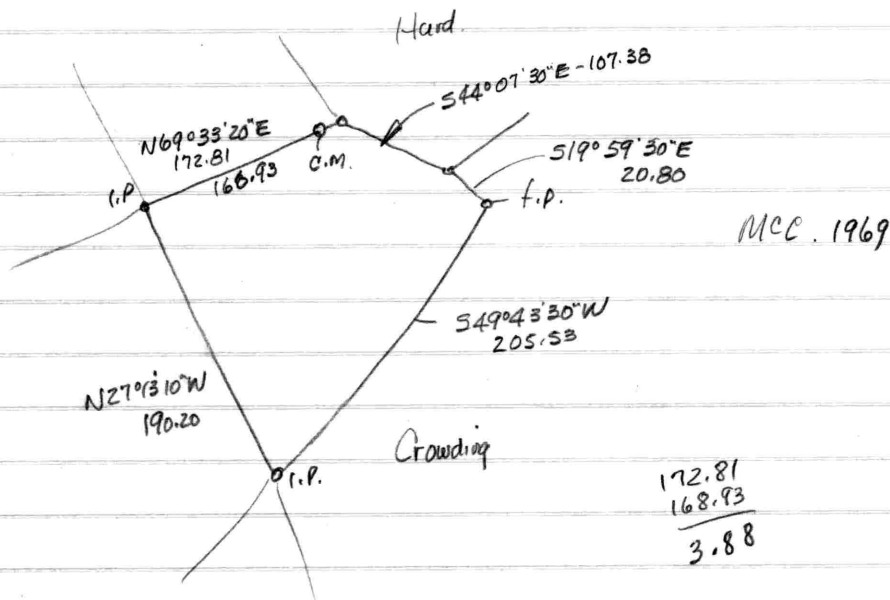 Hard.
S44°07'30"E-107.38
N69°33'20"E
172.81
168.93
C.M.
S19°59'30"E
20.80
I.P.
f.P.
MCC. 1969
S49°43'30"W
205.53
N27°13'10"W
190.20
Crowding
I.P.
172.81
168.93
3.88